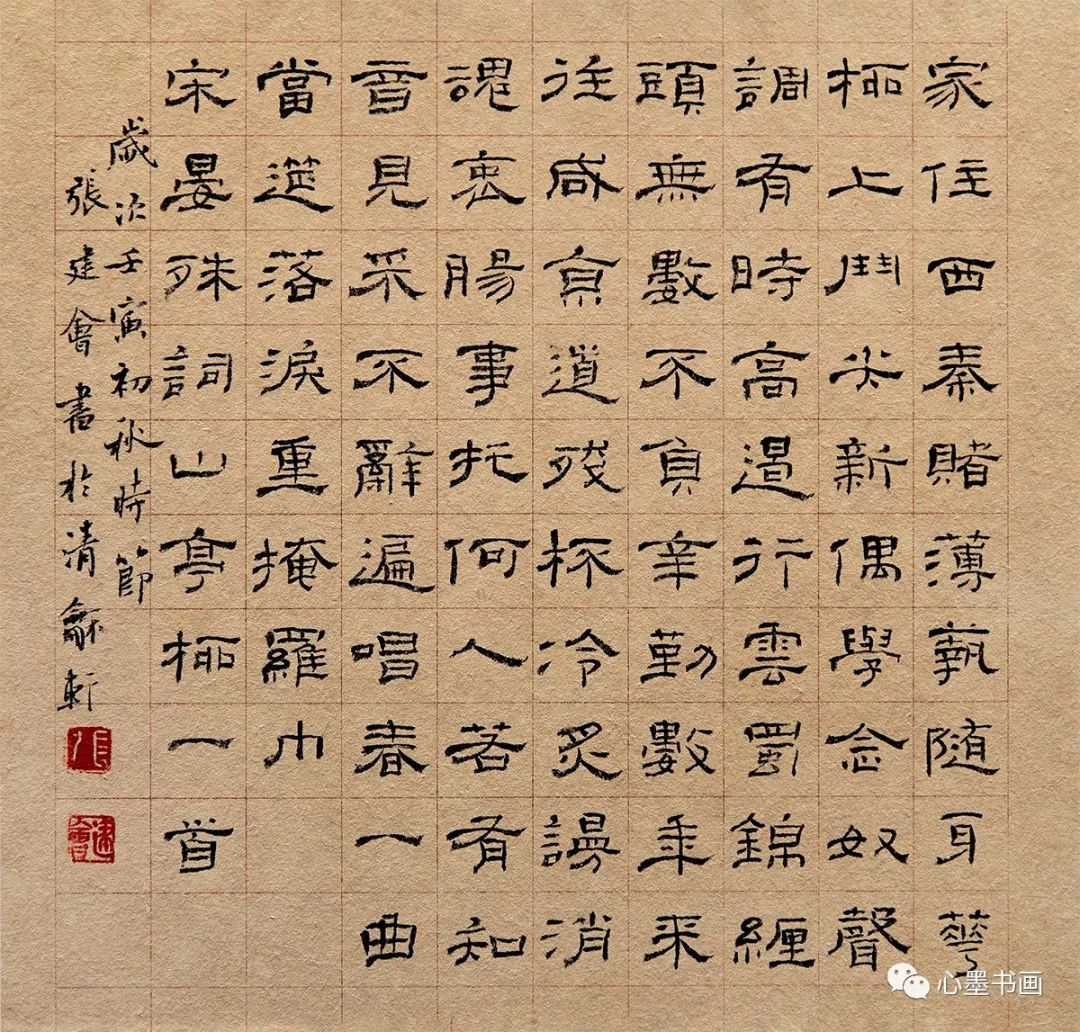 家住西秦賭薄埶随身蕐
柳上鬥尖新偶學念奴聲
調有時高遏行雲蜀錦纏
頭無數不負辛勤數年来
往咸京道殘杯冷炙謾消
魂衷腸事托何人若有知
音見采不辭遍唱春一曲
當筵落淚重掩羅巾
宋晏殊詞山亭柳一首
歲次壬寅初秋時節
張建會書於清龢軒
張
建會
心墨书画